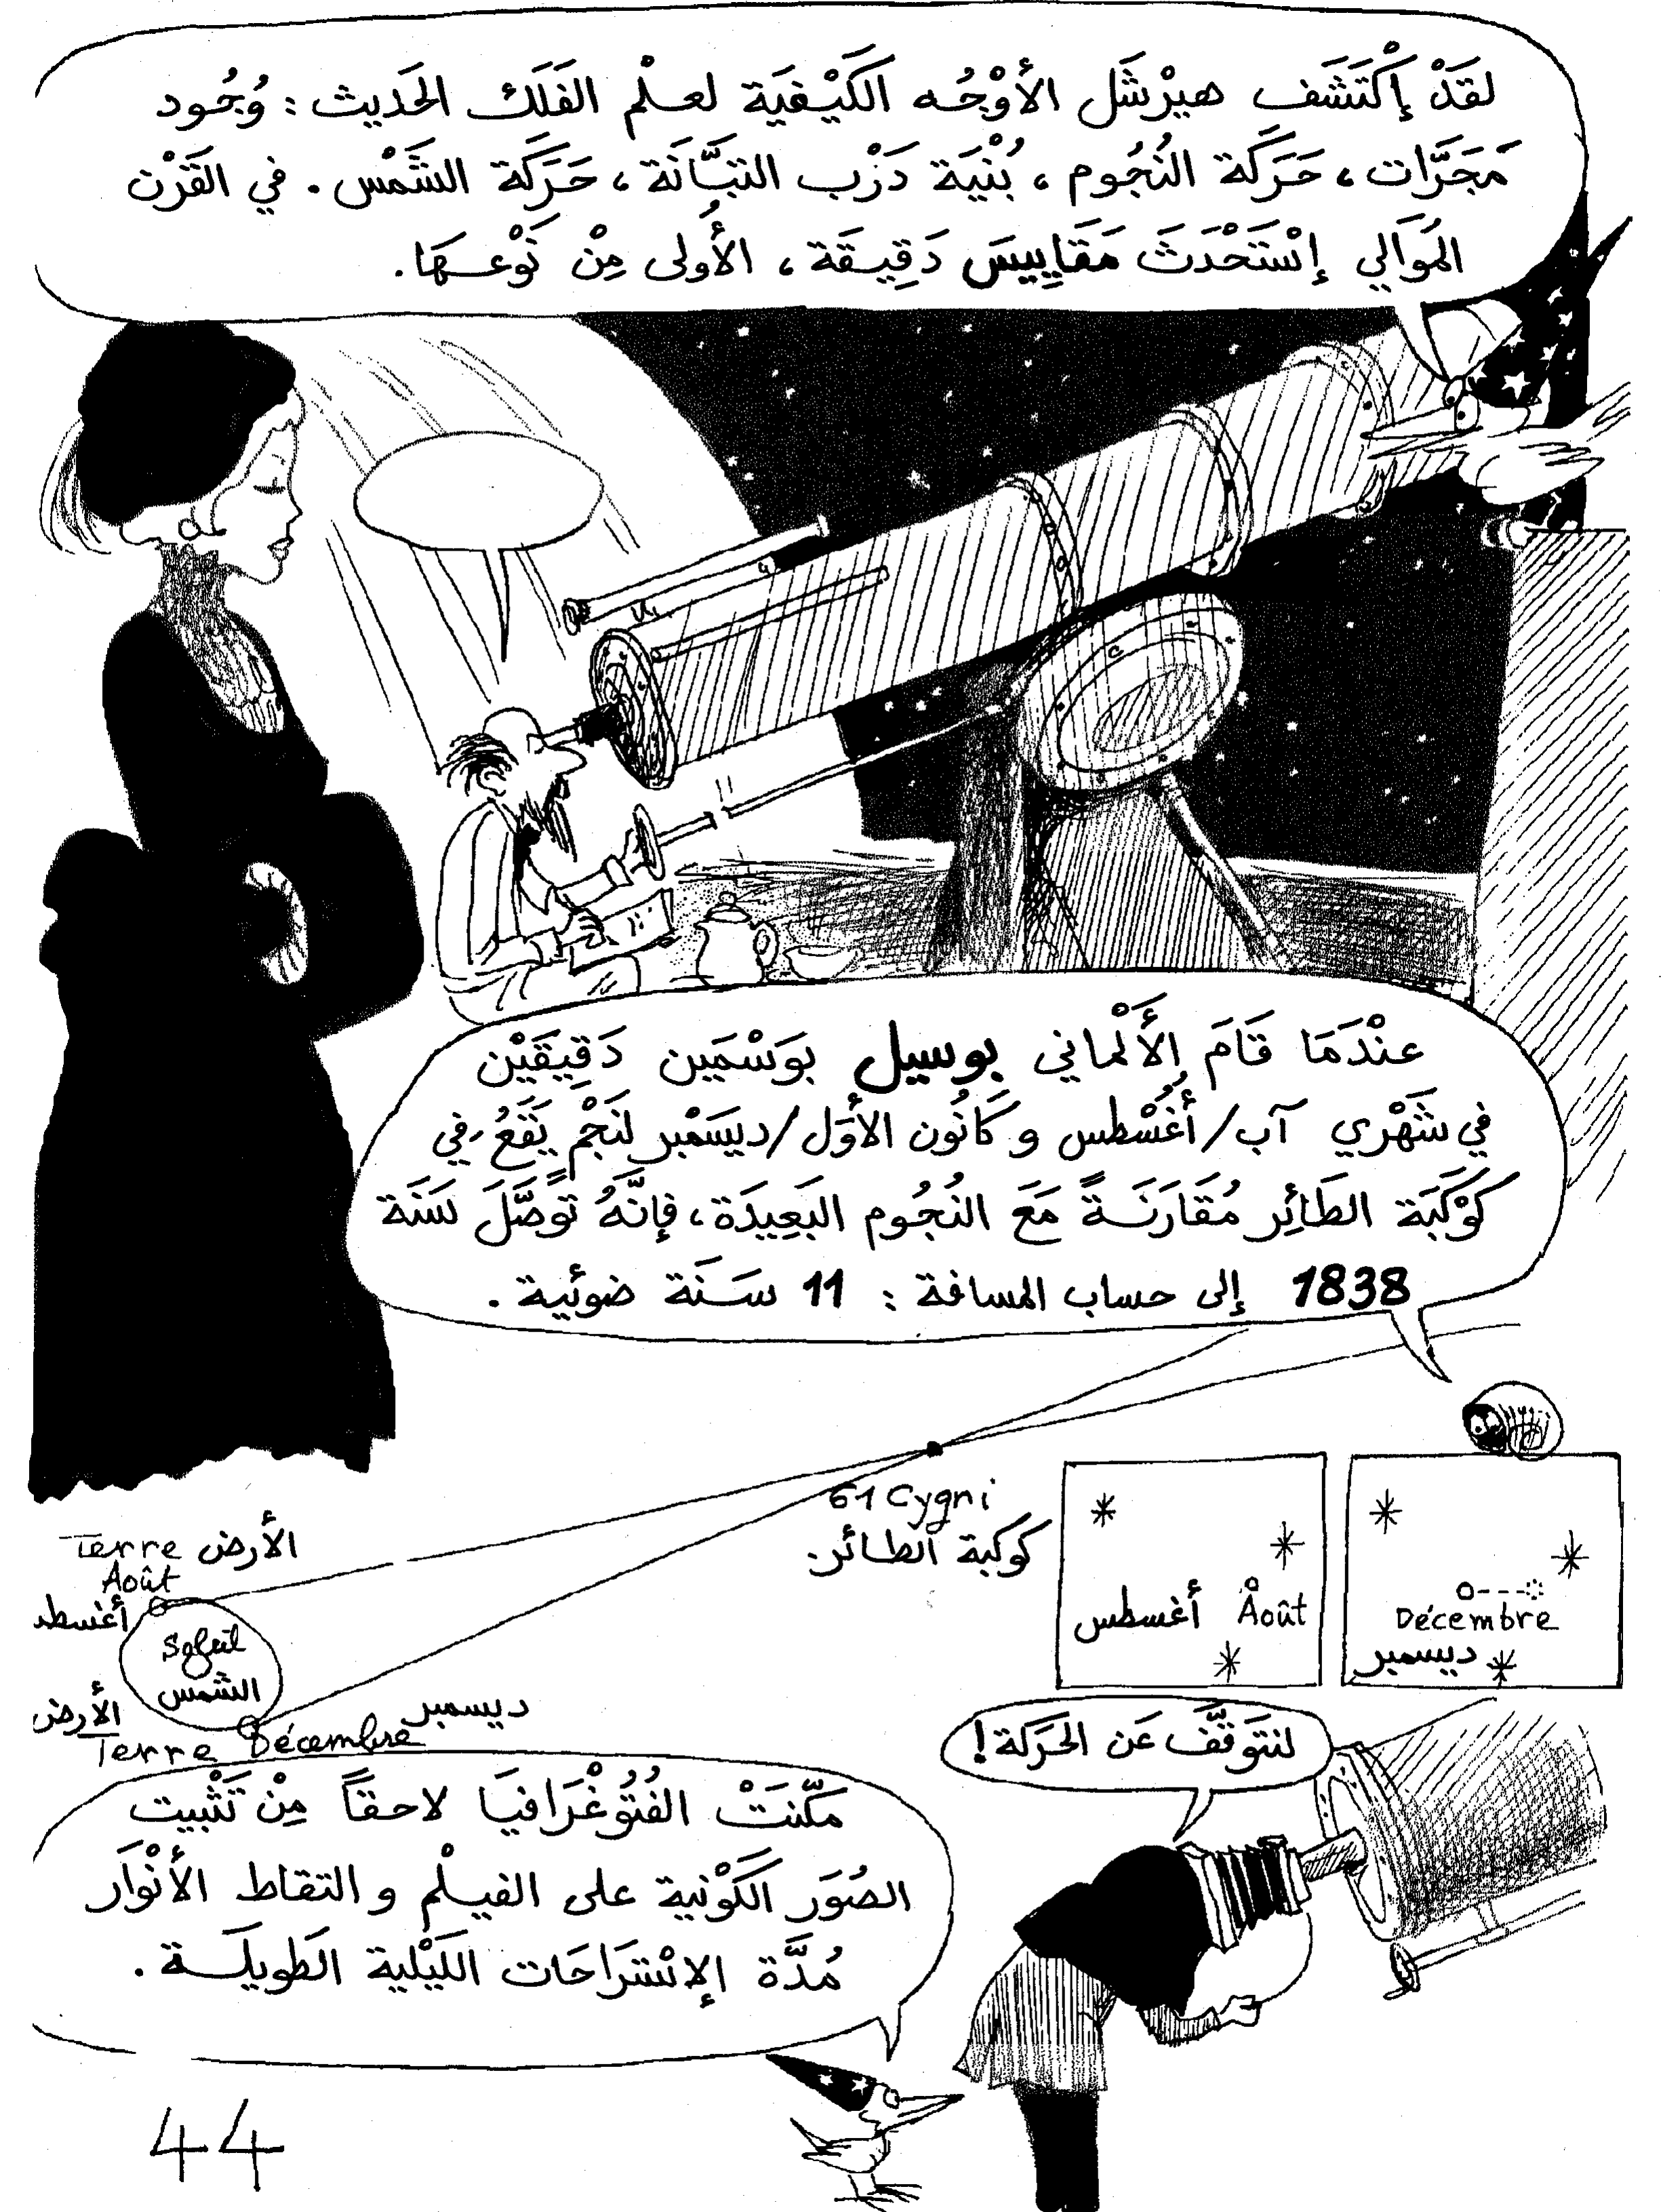 لقَدْ إكْتَشَف هيرْشَل الأوْجُه الكَيْفيَة لعلْم الفَلَك الحَديث : وُجُود
مَجَرَّات ، حَرَكَة النُجُوم ، بُنْيَة دَرْب التبَّانَة ، حَرَكَة الشَمْس . في القَرْن
المُوَالي إسْتَحْدَثَ مَقَايِيسَ دَقِيقَة ، الأُولى مِنْ نَوْعهَا .
عنْدَمَا قَامَ الأَلْماني بوسيل بوَسْمَين دَقِيقَيْن
في شَهْري آب/أغُسْطس و كَانُون الأوَل/ديسَمْبر لنَجْمٍ يَقَعُ في
كَوْكَبَة الطَائِر مُقَارَنَةً مَعَ النُجُوم البَعِيدَة ، فإنَّهُ تَوَصَّلَ سَنَة
1838 إلى حساب المسافة : 11 سَنَة ضوئية .
61 Cygni
كوكبة الطائر .
Terre الأرض
Août
أغسطس
Soleil
الشمس
الأرض
Terre Décembre ديسمبر
أغسطس Août
Décembre
ديسمبر
لنَتَوقَّف عَن الحَرَكة !
مكّنَتْ الفُتُوغْرَافيَا لاحقاً مِنْ تَثْبيت
الصُوَر الكَوْنية على الفيلْم و التقاط الأنْوَار
مُدَّة الإسْتَرَاحَات اللَيْلية الطَويلَة .
44